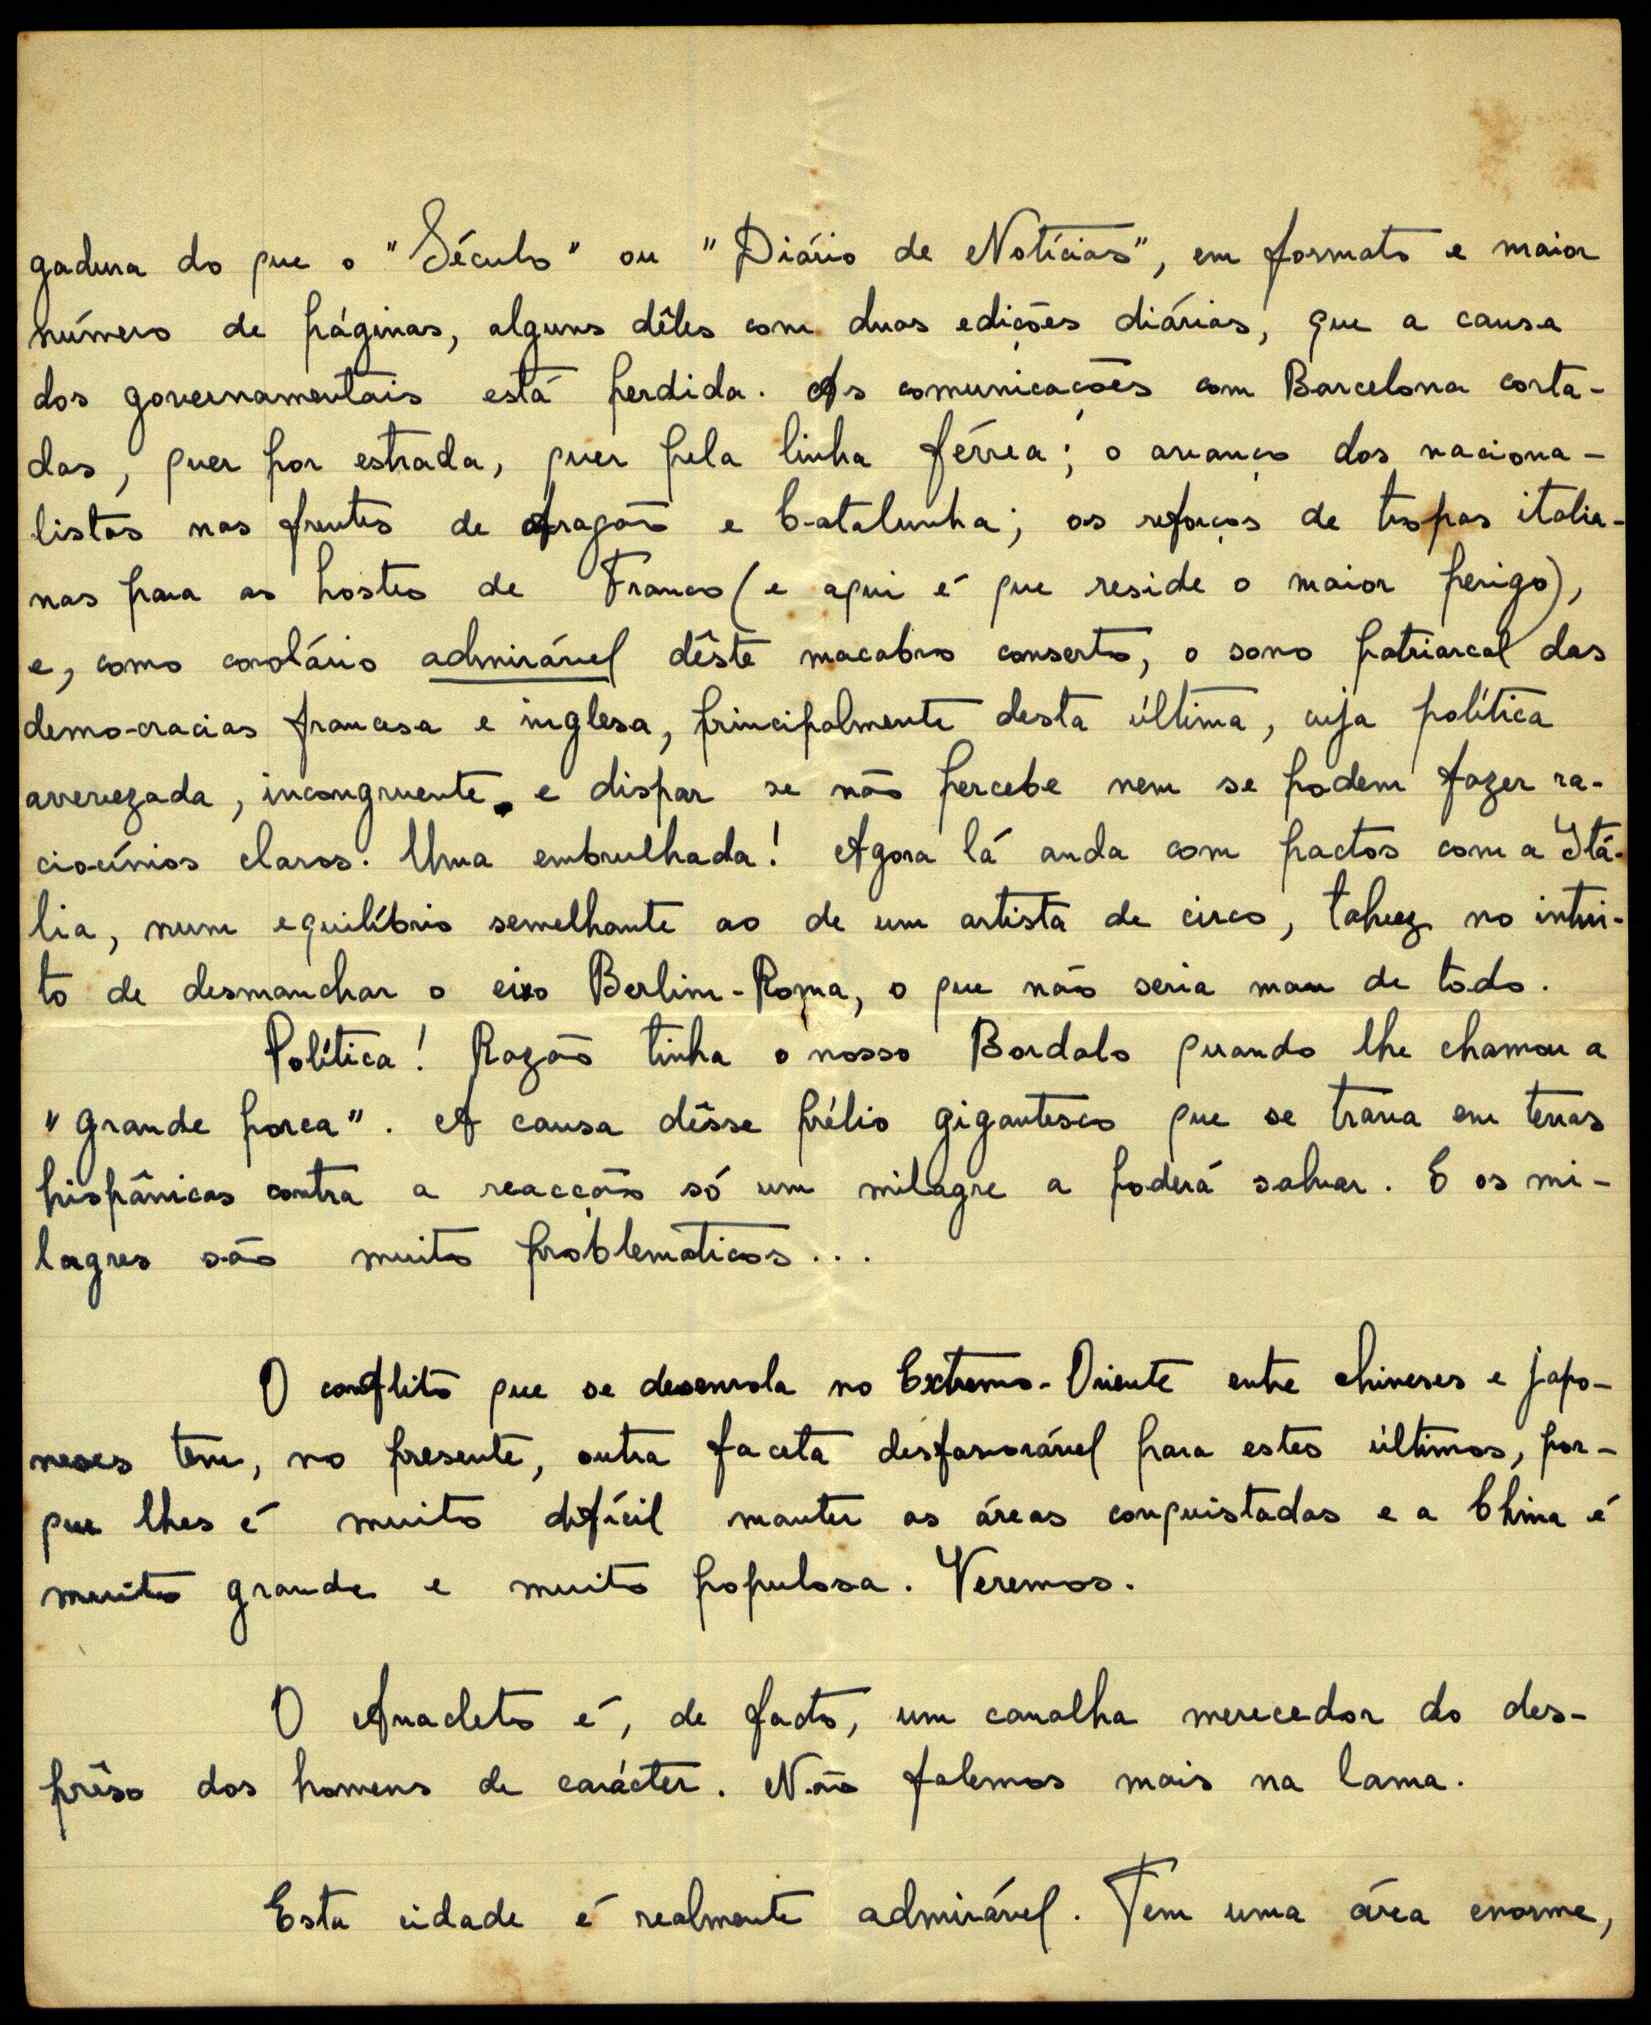 gadura do que o "Século" ou "Diário de Notícias", em formato e maior
número de páginas, alguns dêles com duas edições diárias, que a causa
dos governamentais está perdida. As comunicações com Barcelona corta-
das, quer por estrada, quer pela linha férrea; o avanço dos naciona-
listas nas frentes de Aragão e Catalunha; os reforços de tropas italia-
nas para as hostes de Franco (e aqui é que reside o maior perigo),
e, como corolário admirável dêste macabro conserto, o sono patriarcal das
democracias francesa e inglesa, principalmente desta última, cuja política
avevezada, incongruente e dispar se não percebe nem se podem fazer ra-
ciocínios claros. Uma embrulhada! Agora lá anda com pactos com a Itá-
lia, num equilíbrio semelhante ao de um artista de circo, talvez no intui-
to de desmanchar o eixo Berlim-Roma, o que não seria mau de todo.
Política! Razão tinha o nosso Bordalo quando lhe chamou a
"grande porca". A causa dêsse prélio gigantesco que se trava em terras
hispânicas contra a reacção só um milagre a poderá salvar. E os mi-
lagres são muito problemáticos...
O conflito que se desenrola no Extremo-Oriente entre chineses e japo-
neses tem, no presente, outra faceta desfavorável para estes últimos, por-
que lhes é muito difícil manter as áreas conquistadas e a China é
muito grande e muito populosa. Veremos.
O Anacleto é, de facto, um canalha merecedor do des-
prêso dos homens de carácter. Não falemos mais na lama.
Esta cidade é realmente admirável. Tem uma área enorme,